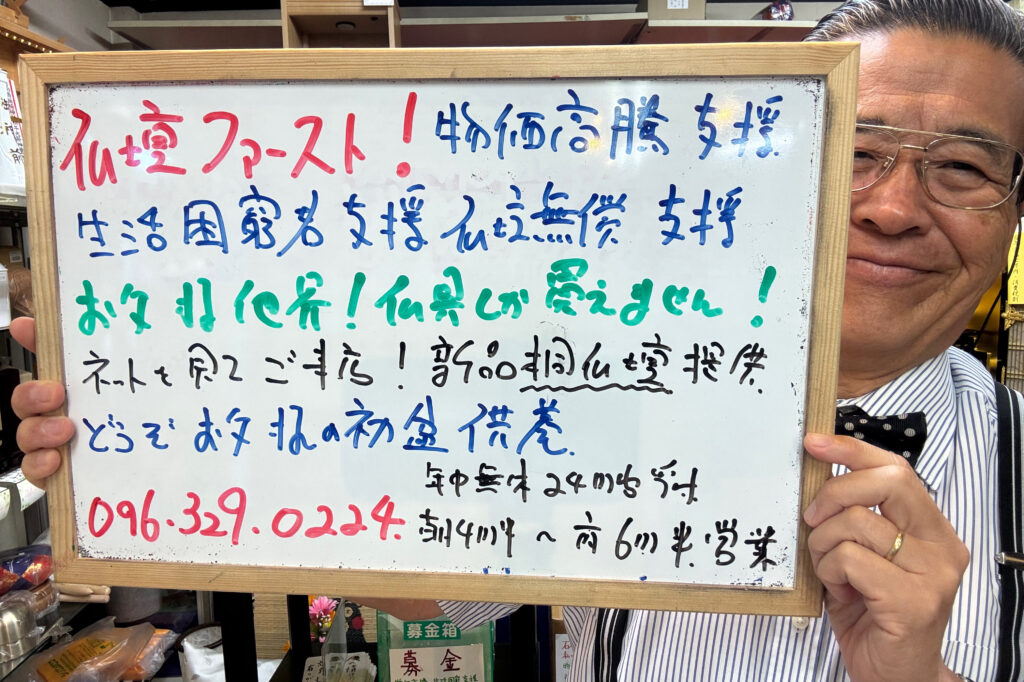 仏壇ファースト！物価高騰 支援
生活困窮者 支援 仏壇無償 支援
お久力化界！仏具しか買えません！
ネットを見てご来店！新品桐仏壇提供
どうぞ お久力の初盆供養
年中無休 24時間受付
096.329.0224. 朝4時半〜夜6時半.営業
募金箱
募金